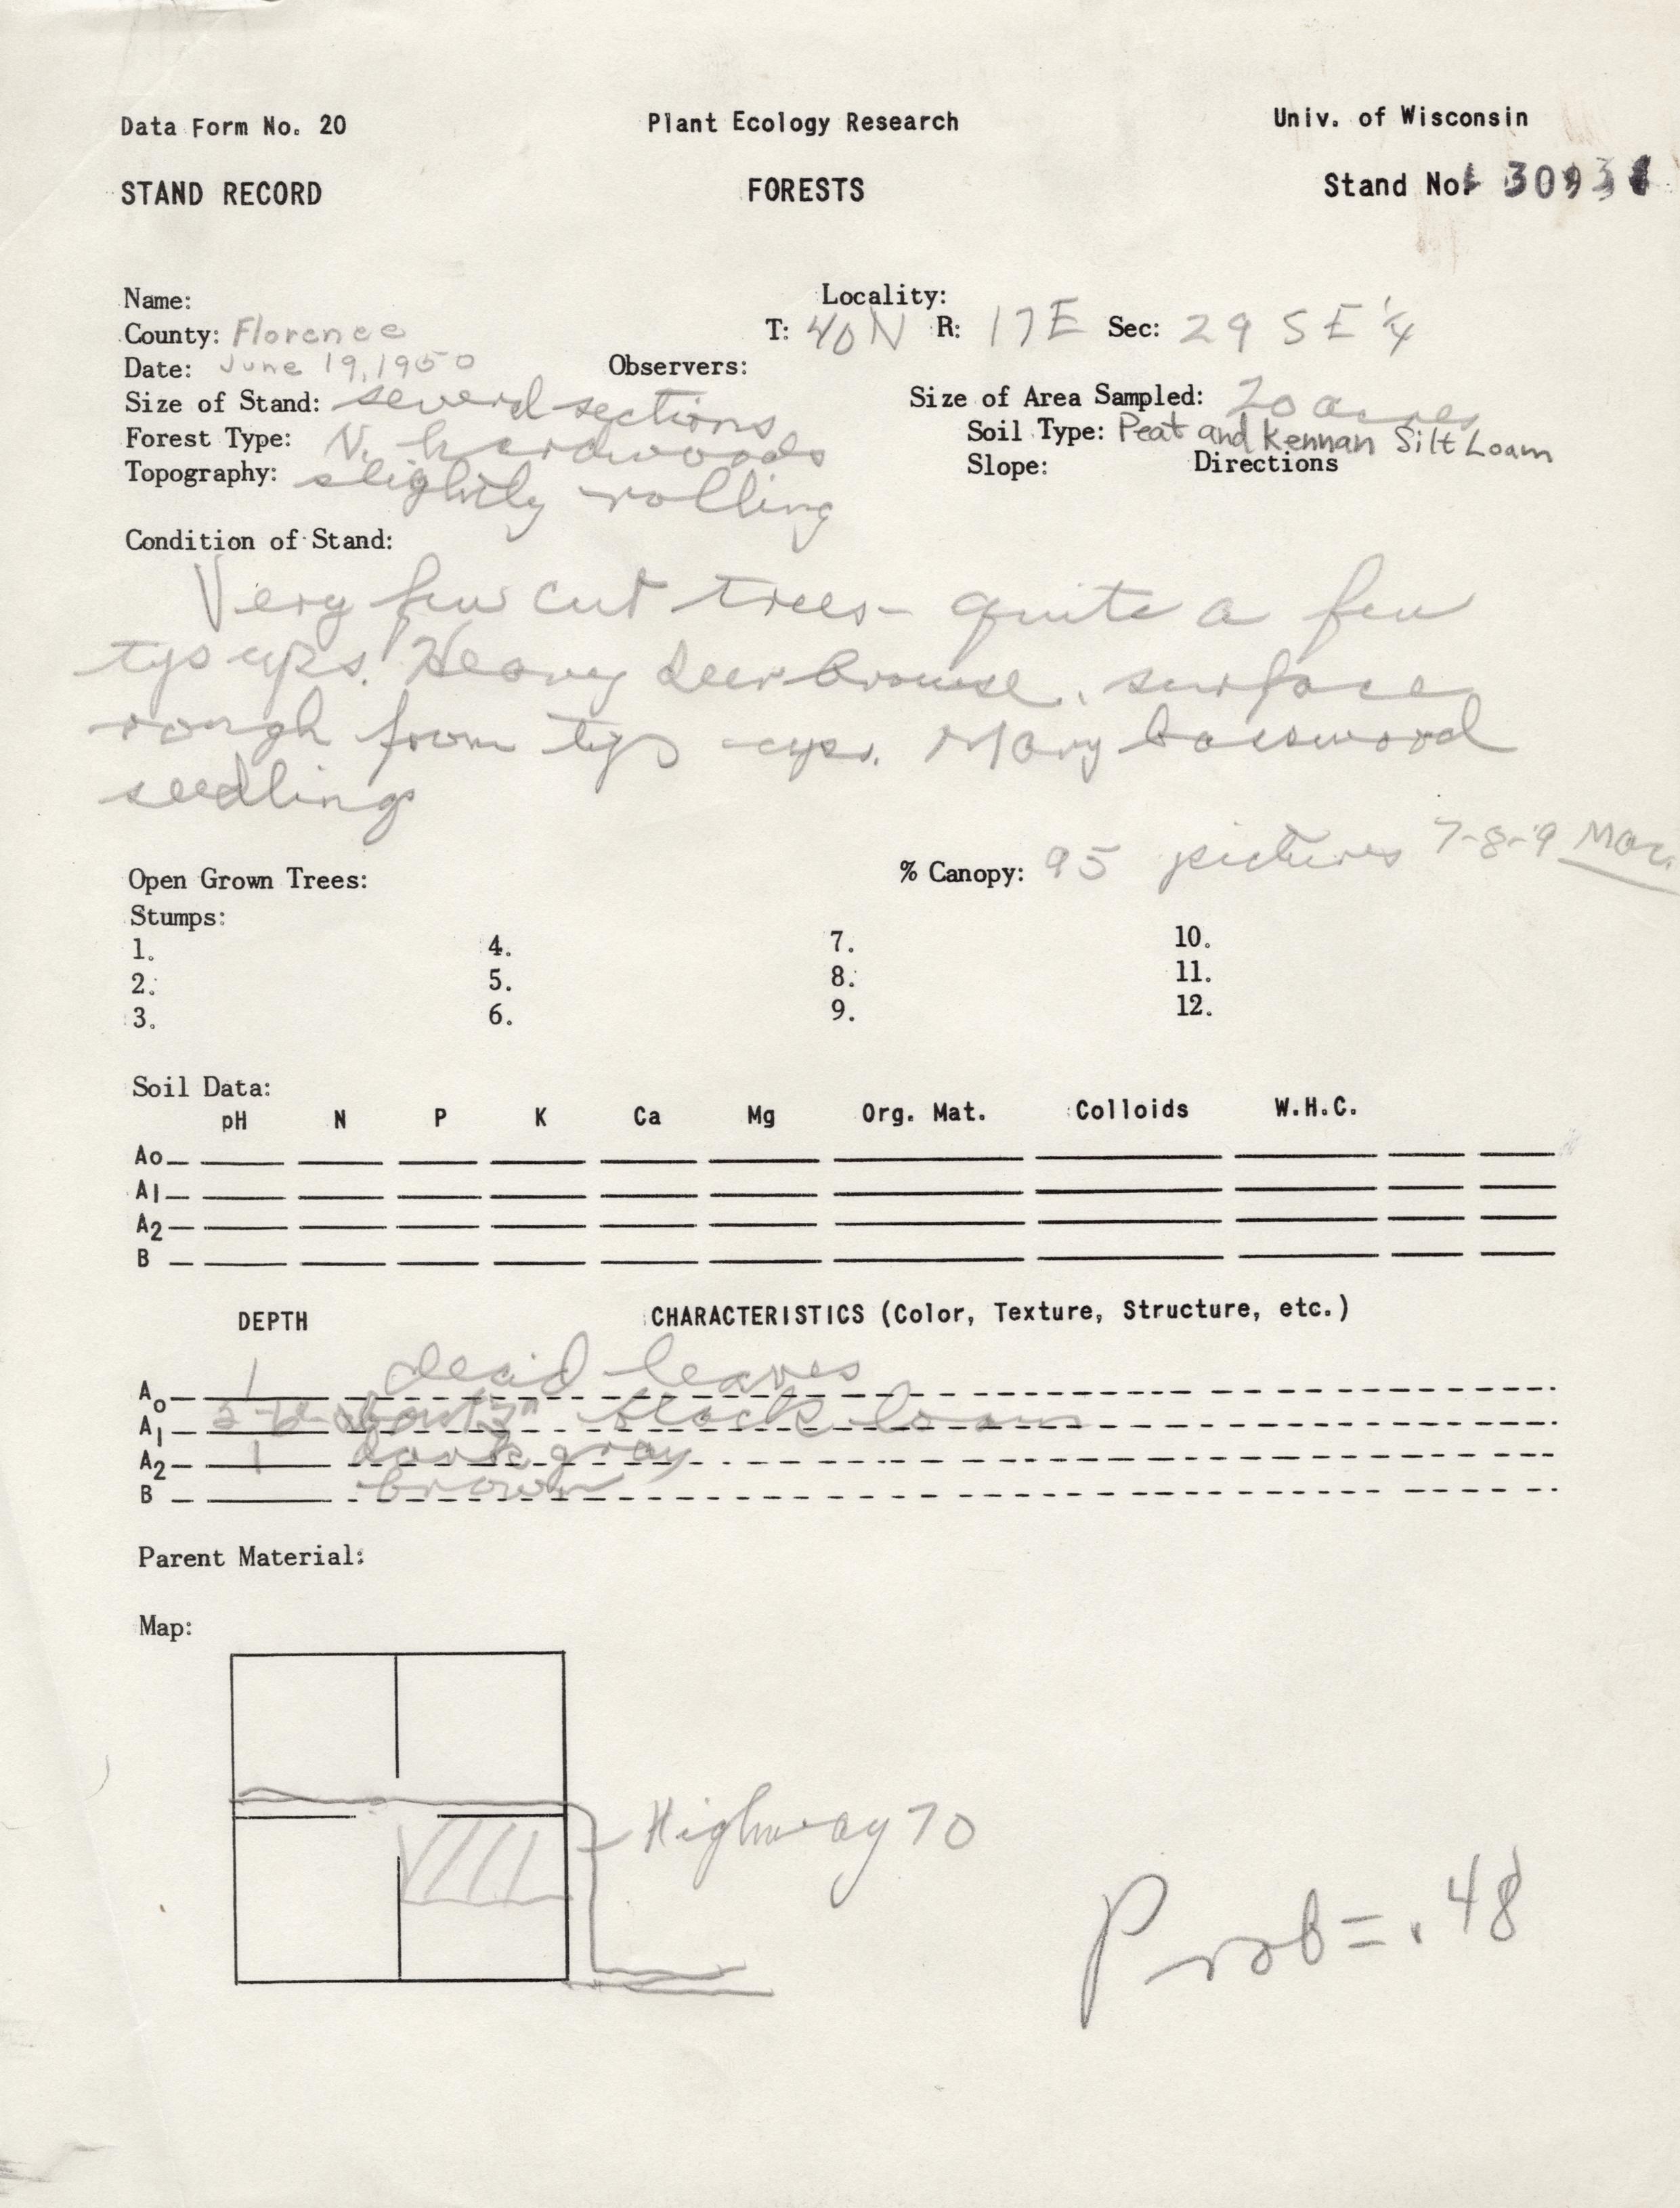 Data Form No. 20 Plant Ecology Research Univ. of Wisconsin
STAND RECORD FORESTS Stand No.
Name: Locality:
County: Florence T: 40N R: 17E Sec: 29 SE 1/4
Date: June 19, 1950 Observers:
Size of Stand: several sections Size of Area Sampled: 20 acres
Forest Type: N. hardwoods Soil Type: Peat and Kennan Silt Loam
Topography: slightly rolling Slope: Directions
Condition of Stand:
Very few cut trees - quite a few
tys ups. Heavy deer browse. surface
rough from tys ups. Many basswood
seedlings
Open Grown Trees: % Canopy: 95 pictures 7-8-9 Mac.
Stumps:
1. 4. 7. 10.
2. 5. 8. 11.
3. 6. 9. 12.
Soil Data:
pH N P K Ca Mg Org. Mat. Colloids W.H.C.
Ao
A1
A2
B
DEPTH CHARACTERISTICS (Color, Texture, Structure, etc.)
Ao 1 dead leaves
A1 about 3" black loam
A2 1 dark gray
B brown
Parent Material:
Map:
Highway 70
Prob = .48